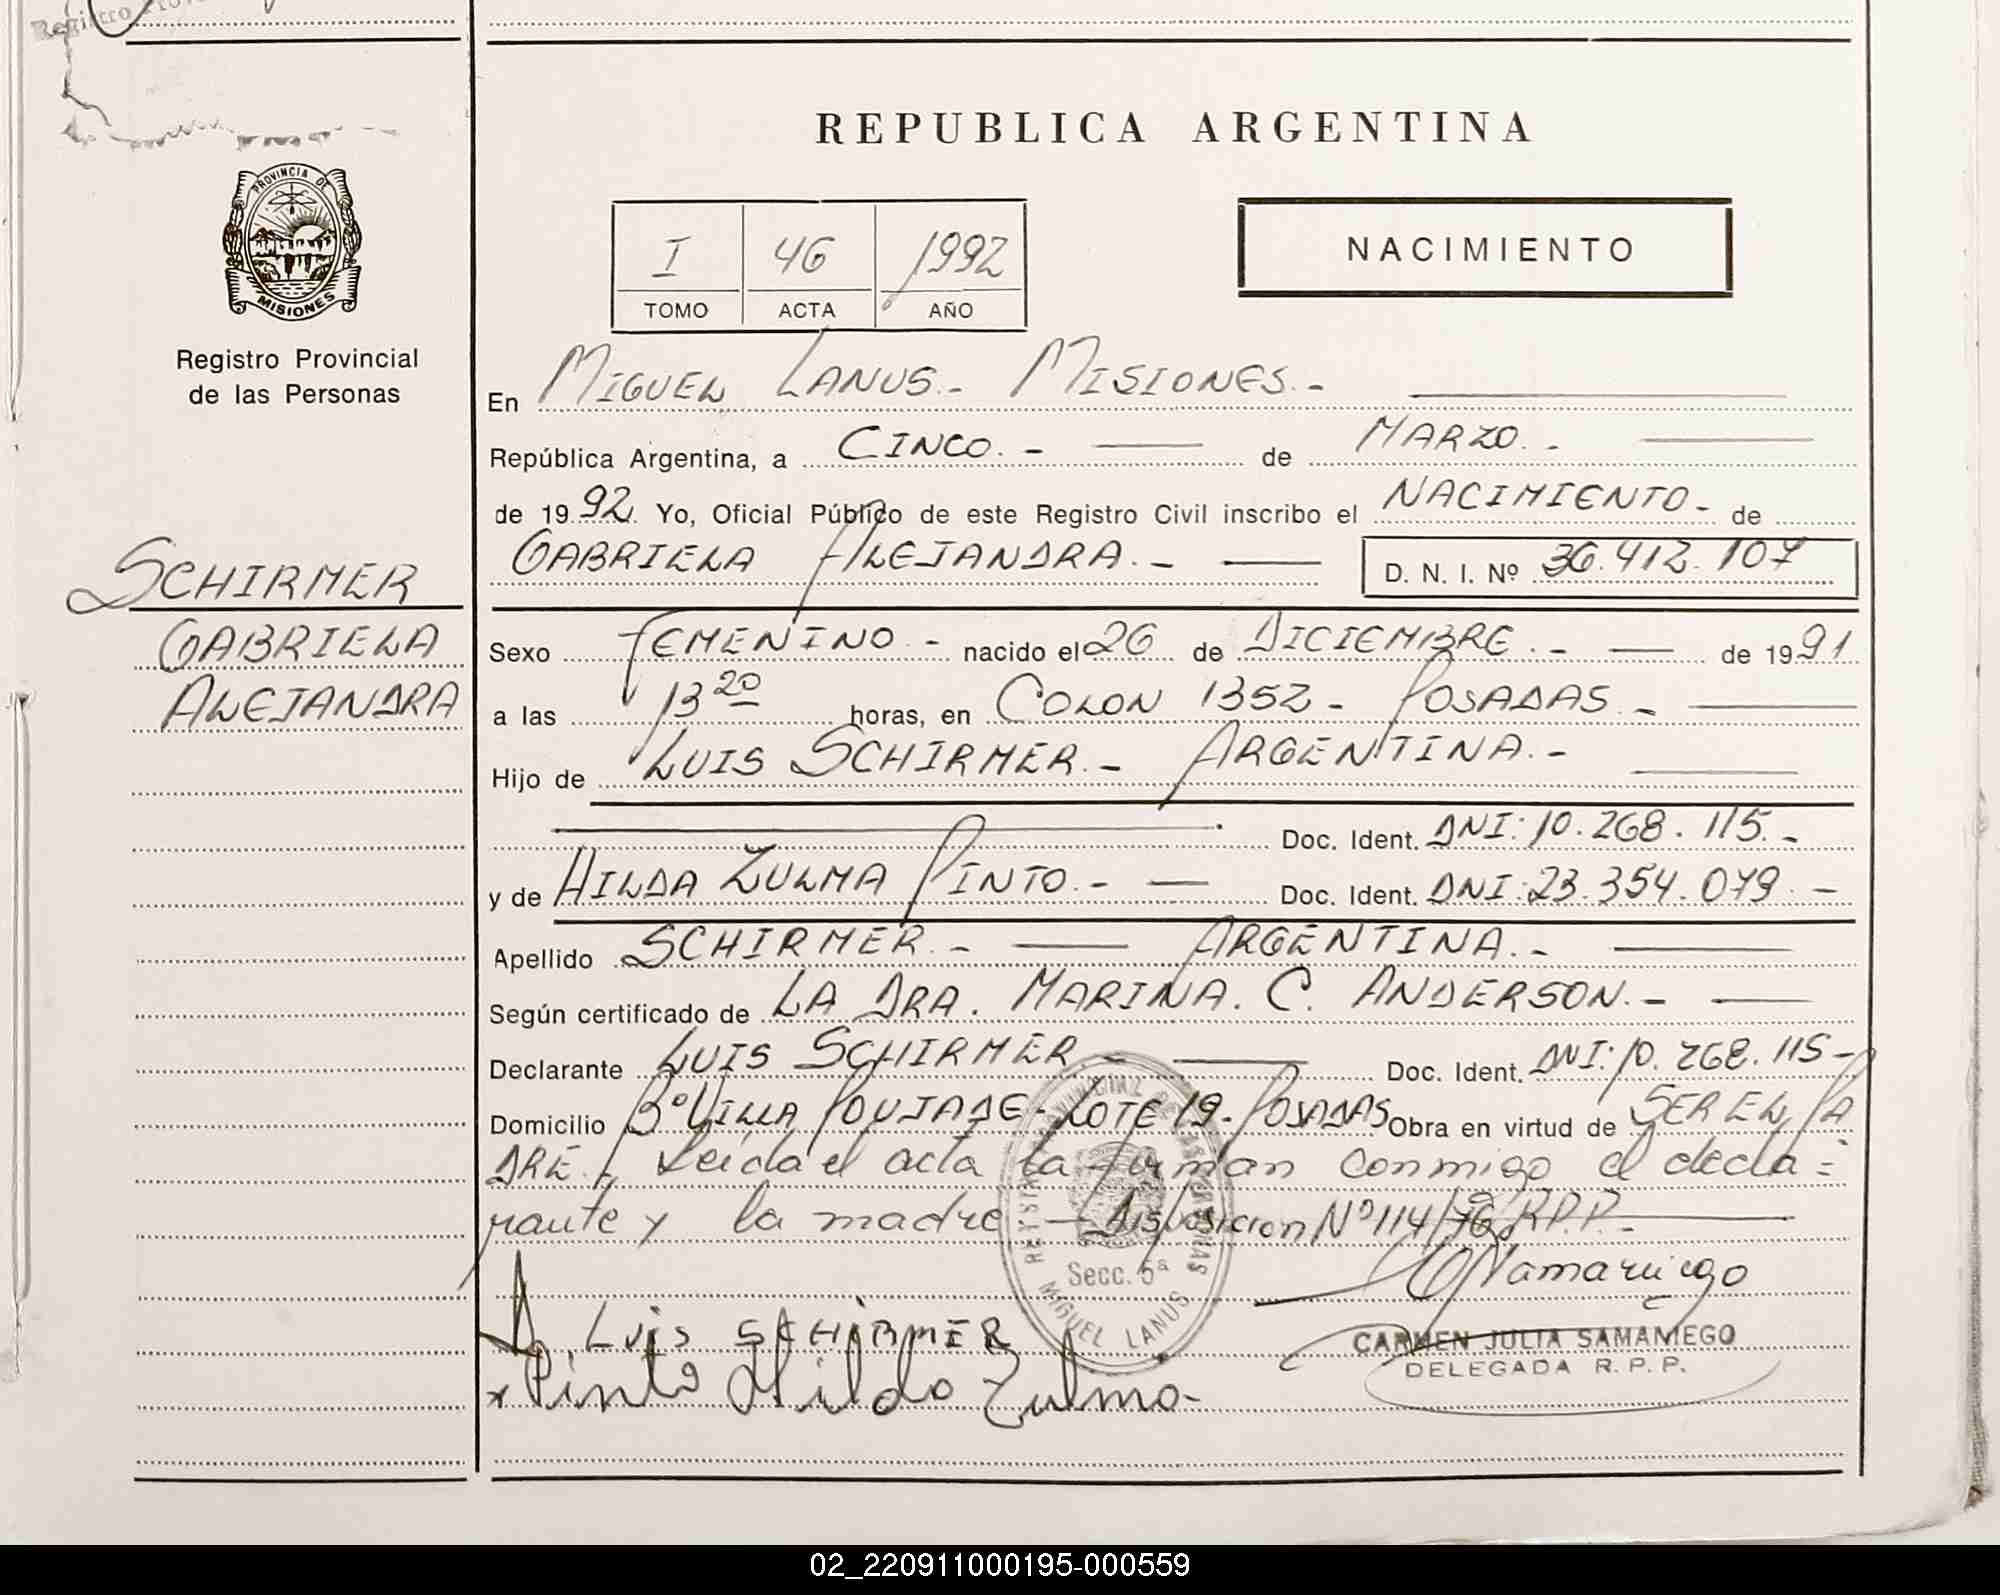 Registro Provi
REPUBLICA ARGENTINA
PROVINCIA DE
MISIONES
Registro Provincial
de las Personas
I 46 1992
TOMO ACTA AÑO
NACIMIENTO
SCHIRMER
GABRIELA
ALEJANDRA
En MIGUEL LANUS.- MISIONES.-
República Argentina, a CINCO.- de MARZO.-
de 1992. Yo, Oficial Público de este Registro Civil inscribo el NACIMIENTO- de
GABRIELA ALEJANDRA.- D. N. I. Nº 36.412.107
Sexo FEMENINO.- nacido el 26 de DICIEMBRE.- de 1991
a las 13 20 horas, en COLON 1352- POSADAS.-
Hijo de LUIS SCHIRMER.- ARGENTINA.-
Doc. Ident. DNI: 10.268.115.-
y de HILDA ZULMA PINTO.- Doc. Ident. DNI: 23.354.079.-
Apellido SCHIRMER.- ARGENTINA.-
Según certificado de LA DRA. MARINA. C. ANDERSON.-
Declarante LUIS SCHIRMER.- Doc. Ident. DNI: 10.268.115-
Domicilio Bº VILLA POUJADE- LOTE 19- POSADAS Obra en virtud de SER EL PA
DRE.- Leida el acta la firman conmigo el decla=
rante y la madre - Disposicion Nº 114/76 R.P.P.-
Secc. 5ª
MIGUEL LANUS
LUIS SCHIRMER
CARMEN JULIA SAMANIEGO
DELEGADA R. P. P.
x Pinto Hilda Zulma-
02_220911000195-000559